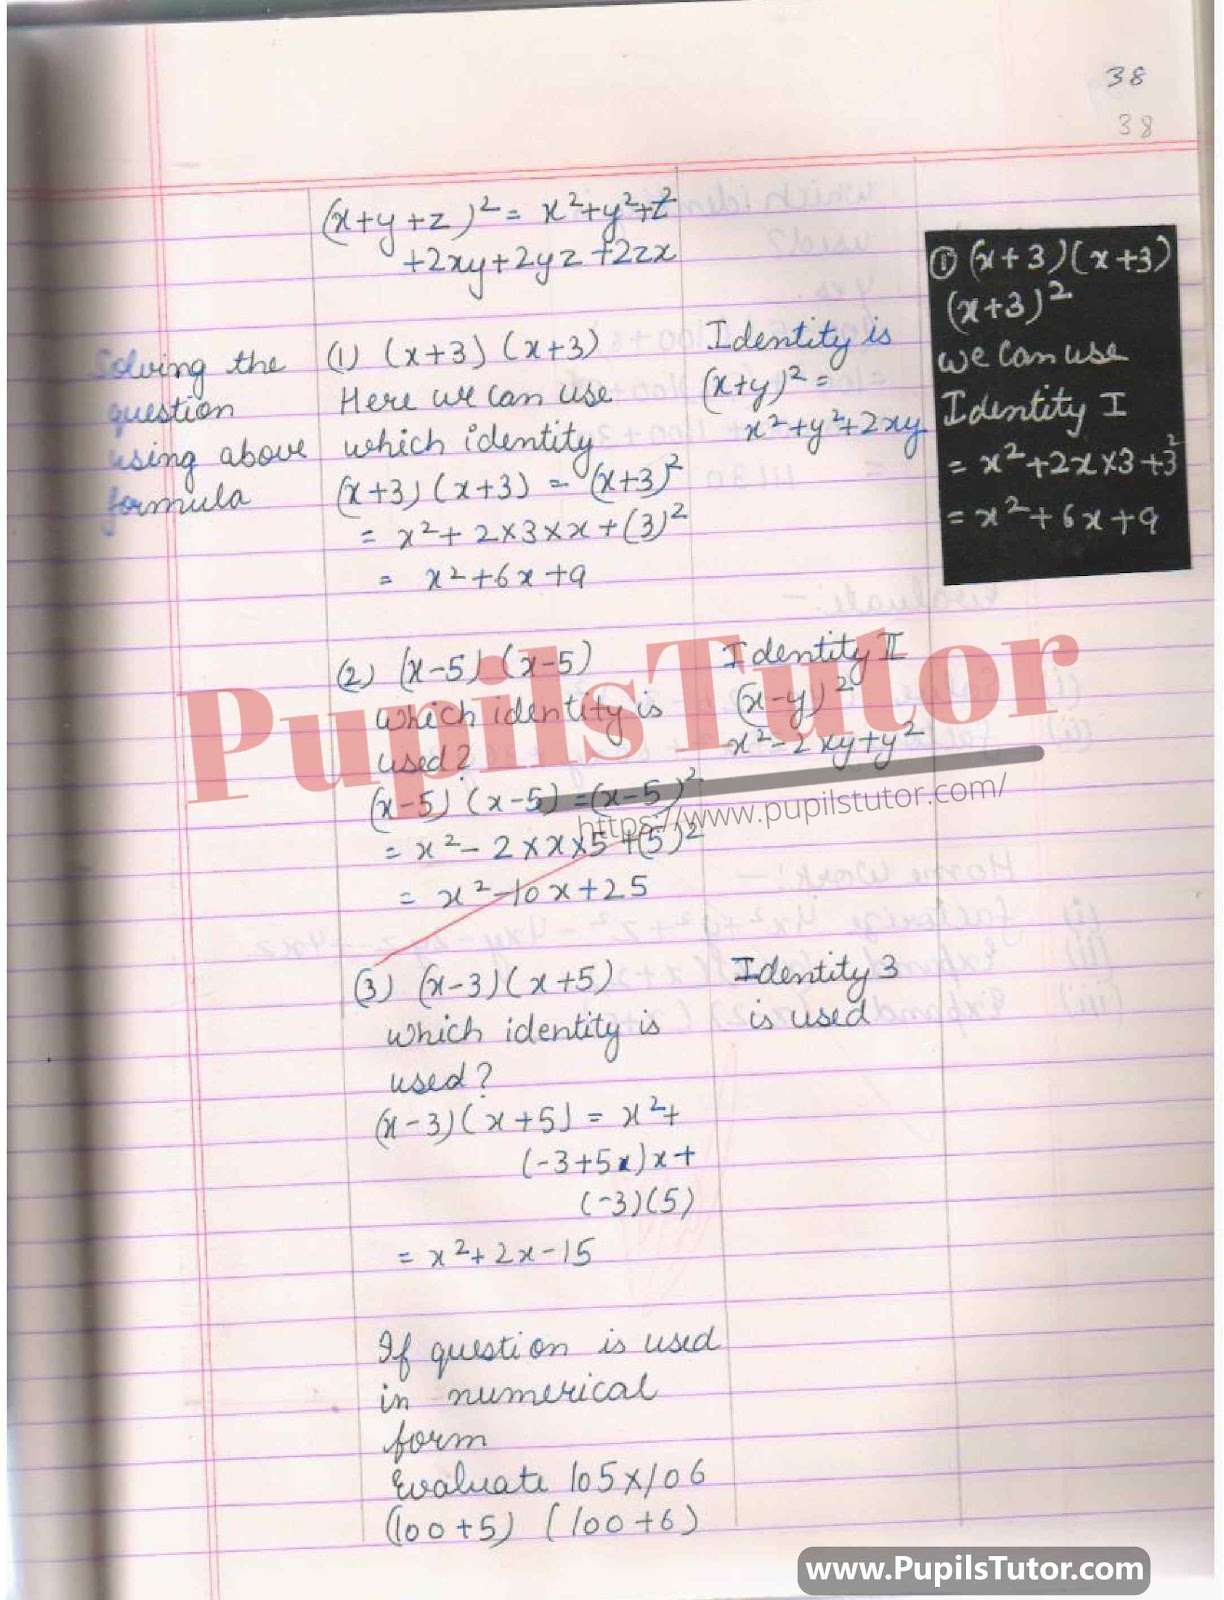 38
38
(x+y+z)² = x²+y²+z²
+2xy+2yz+2zx
Solving the
question
using above
formula
(1) (x+3) (x+3)
Here we can use
which identity
(x+3) (x+3) = (x+3)²
= x²+ 2×3×x+(3)²
= x²+6x+9
Identity is
(x+y)² =
x²+y²+2xy
① (x+3)(x+3)
(x+3)²
we can use
Identity I
= x²+2x×3+3²
= x²+6x+9
(2) (x-5) (x-5)
which identity is
used?
(x-5) (x-5) = (x-5)²
= x²- 2×x×5+(5)²
= x²-10x+25
Identity II
(x-y)²
x²-2xy+y²
PupilsTutor
https://www.pupilstutor.com/
(3) (x-3)(x+5)
which identity is
used?
(x-3)(x+5) = x²+
(-3+5x)x+
(-3)(5)
= x²+2x-15
Identity 3
is used
If question is used
in numerical
form
Evaluate 105×106
(100+5) (100+6)
www.PupilsTutor.com